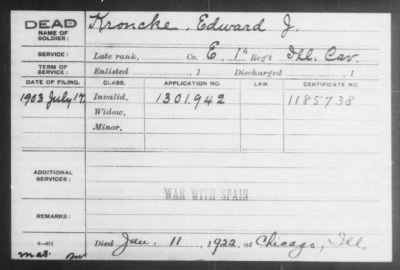 DEAD Kroncke, Edward J.
NAME OF SOLDIER:
SERVICE: Late rank, Co. E, 1st Reg't Ill. Cav.
TERM OF SERVICE: Enlisted , 1 Discharged , 1
DATE OF FILING. CLASS. APPLICATION NO. LAW. CERTIFICATE NO.
1903 July 17 Invalid, 1301.942 1185738
Widow,
Minor,
ADDITIONAL SERVICES:
WAR WITH SPAIN
REMARKS:
Died Jan. 11, 1922, at Chicago, Ill.